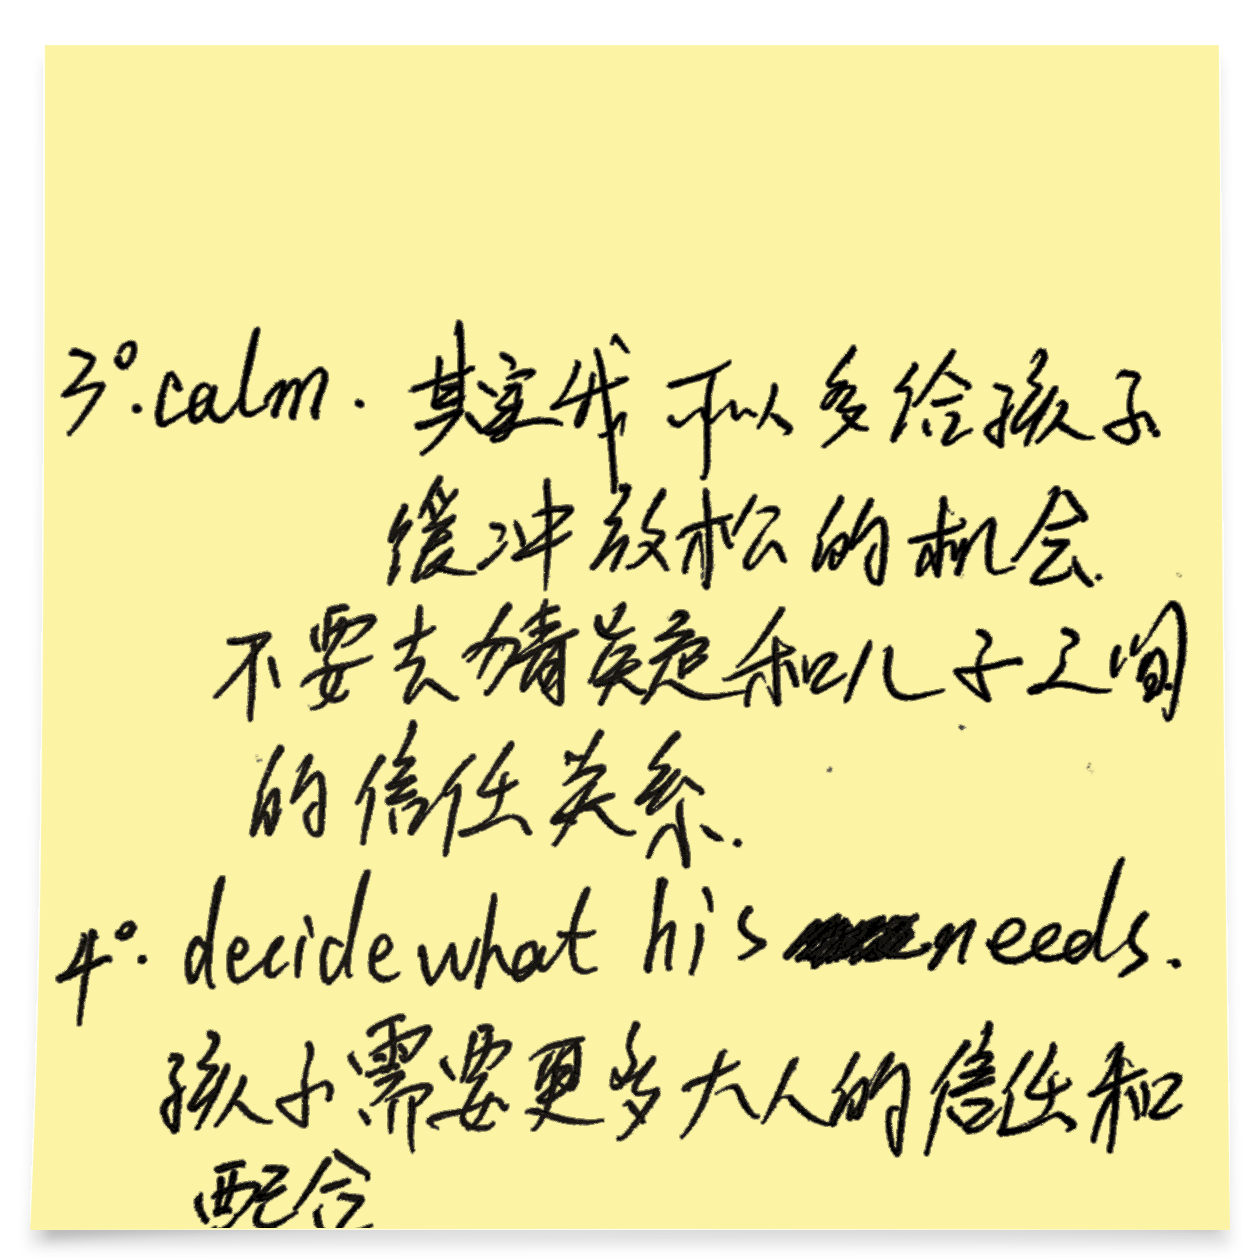 3°. calm. 其实我可以多给孩子
缓冲放松的机会.
不要去猜疑和儿子之间
的信任关系.
4°. decide what his needs.
孩子需要更多大人的信任和
配合